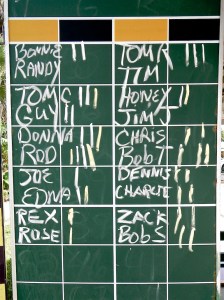 BONNIE
RANDY
TOM C
GUY
DONNA
ROD
JOE
EDNA
REX
ROSE
TOM R
JIM
HONEY
JIM J
CHRIS
BOB T
DENNIS
CHARLIE
ZACK
BOB S